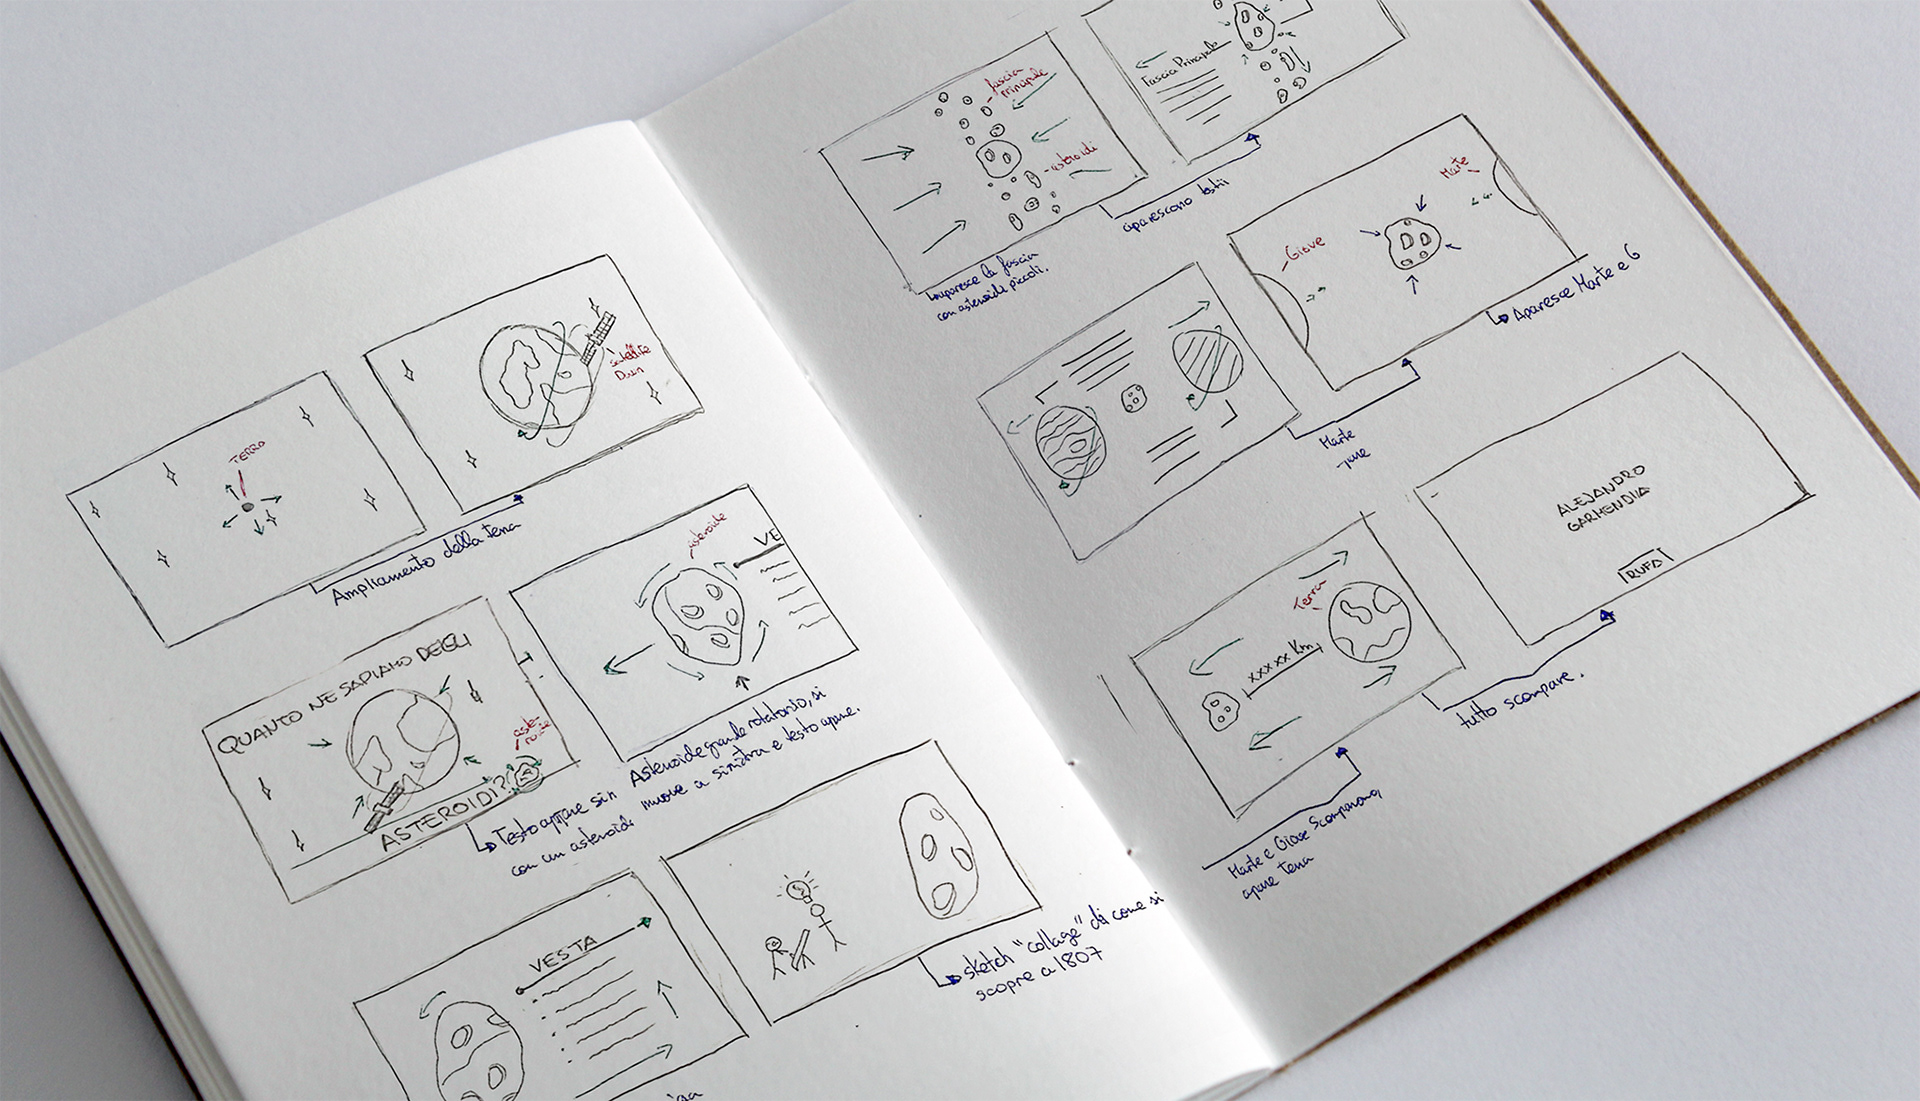 TERRA
satellite
Dawn
Ampliamento della terra
QUANTO NE SAPIAMO DEGLI
aste-
roide
ASTEROIDI?
Testo appare
con un asteroide
asteroide
VE
Asteroide grande rotatorio, si
muove a sinistra e testo apare.
VESTA
sketch "collage" di come si
scopre a 1807
fascia
Principale
asteroidi
la fascia
con asteroidi piccoli.
Fascia Principale
aparescono testi
Giove
Marte
Aparesce Marte e G
Marte
Terra
xxxxx Km
Marte e Giove Scompaiono,
apare terra
ALEJANDRO
GARMENDIA
RUFA
tutto scompare.